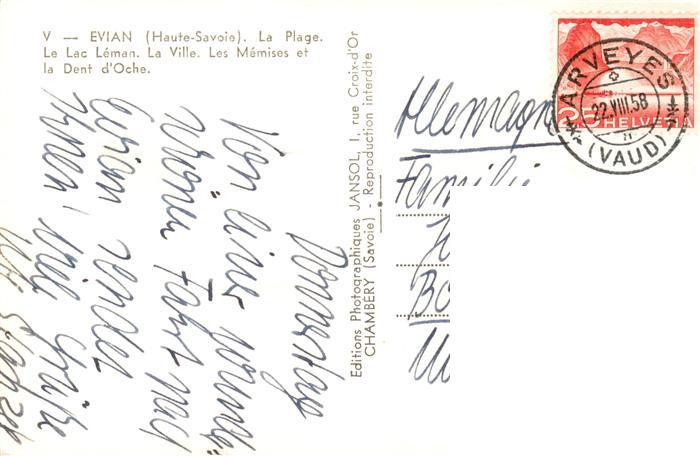 V — EVIAN (Haute-Savoie). La Plage.
Le Lac Léman. La Ville. Les Mémises et
la Dent d'Oche.
Editions Photographiques JANSOL, 1, rue Croix-d'Or
CHAMBERY (Savoie) - Reproduction interdite
ARVEYES
22.VIII.58
(VAUD)
25 HELVETIA
Allemagne
Familie
Donnerstag
Von einer wunder-
schönen Fahrt nach
Evian sendet
Ihnen viele Grüße